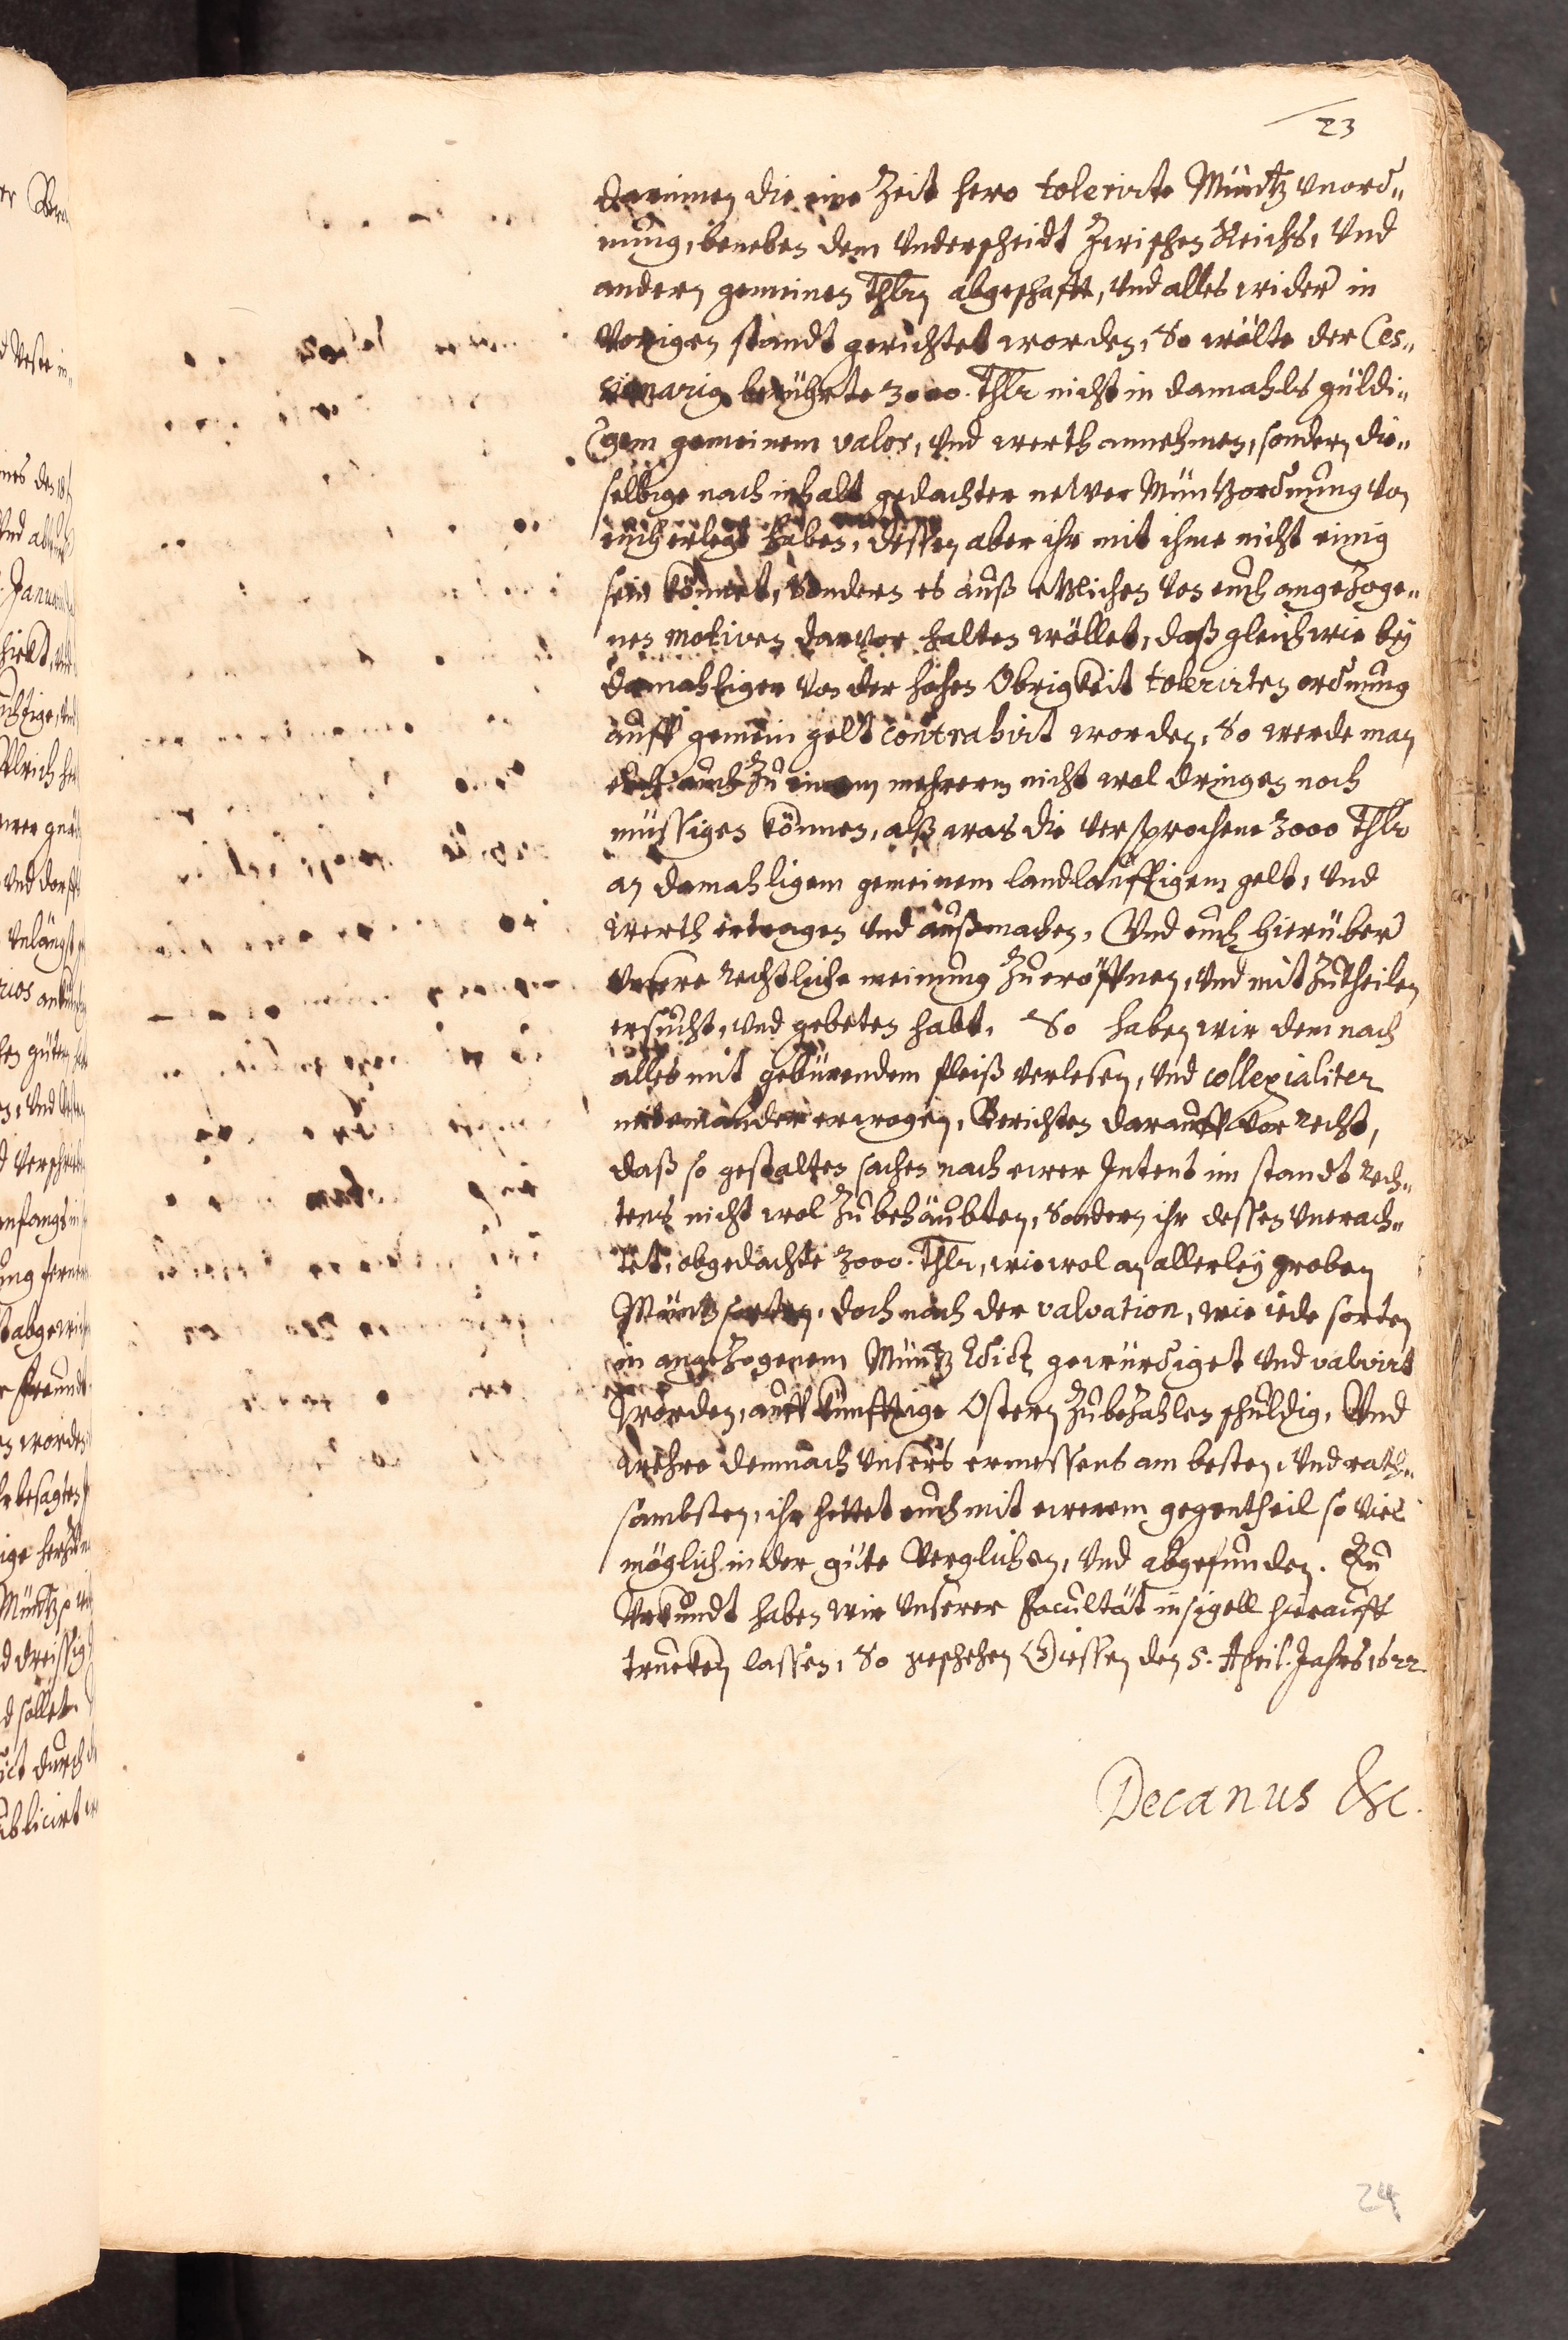 23
darinnen die eine Zeit hero tolerirte Müntz unord„
nung, beneben dem Underscheidt zwischen Reichs, Und
andern gemeinen Thlrn abgeschafft, Und alles wider in
Vorigen standt gerichtet worden, So wölte der Ces„
sionarius berührte 3000. Thlr nicht in damahls güldi„
gem gemeinem valor, Und werth annehmen, sondern die„
selbige nach inhalt gedachter newer Müntzordnung Von
euch erlegt haben, dessen aber ihr mit ihme nicht einig
sein könnet, Sondern es auß etlichen Von euch angezoge„
nen motiven darvor halten wöllet, daß gleich wie bey
damahligen Von der hohen Obrigkeit tolerirten ordnung
auff gemein gelt contrahirt worden, So werde man
euch auch zu einem mehrerm nicht wol dringen noch
müssigen können, alß was die Versprochene 3000 Thlr
an damahligem gemeinem landläuffigem gelt, Und
werth ertragen Und außmachen, Und euch hierüber
Unsere rechtliche meinung zu eröffnen, Und mit zutheilen
ersucht, Und gebeten habt. So haben wir dem nach
alles mit gebürendem fleiß Verlesen, Und collegialiter
mit einander erwogen, Berichten darauff Vor recht,
daß so gestalten sachen nach ewer Intent im standt rech„
tens nicht wol zubehäubten, Sondern ihr dessen Unerach„
tet, obgedachte 3000. Thlr, wiewol an allerley groben
Müntz sorten, doch nach der valvation, wie iede sorten
in angezogenem Müntz Edict gewürdiget Und valvirt
worden, auff künfftige Ostern zubezahlen schuldig, Und
wehre demnach Unsers ermessens am besten, Und rath„
sambsten, ihr hettet euch mit ewerem gegentheil so Viel
möglich in der güte Verglichen, Und abgefunden. Zu
Urkundt haben wir Unserer Facultät insigell hierauff
trucken lassen, So geschehen Giessen den 5. April. Jahrs 1622.
Decanus &c.
24